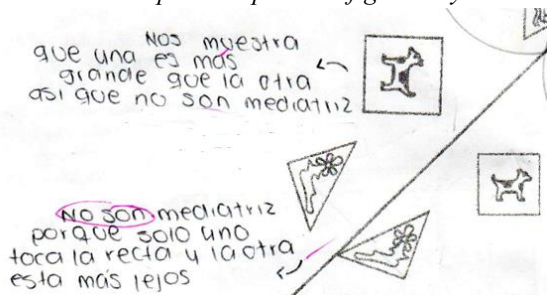 NOS muestra
que una es más
grande que la otra
asi que no son mediatriz
NO SON mediatriz
porque solo uno
toca la recta y la otra
esta más lejos